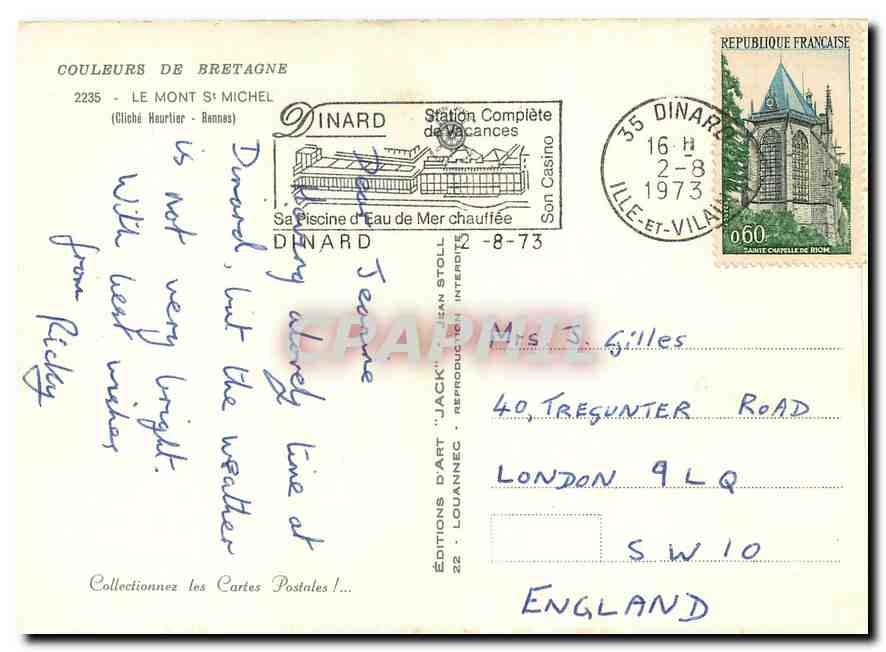 COULEURS DE BRETAGNE
2235 - LE MONT St MICHEL
(Cliché Heurtier - Rennes)
DINARD
Station Complète
de Vacances
Son Casino
Sa Piscine d'Eau de Mer chauffée
DINARD 2 -8-73
35 DINARD
16 H
2-8
1973
ILLE-ET-VILAINE
REPUBLIQUE FRANÇAISE
0,60
SAINTE CHAPELLE DE RIOM
Dear Jeanne
Having a lovely time at
Dinard, but the weather
is not very bright.
With best wishes
from Ricky
ÉDITIONS D'ART "JACK" JEAN STOLL
22 - LOUANNEC - REPRODUCTION INTERDITE
CPAPHIL
Mrs J. Gilles
40, TREGUNTER ROAD
LONDON 9LQ
SW10
ENGLAND
Collectionnez les Cartes Postales !...